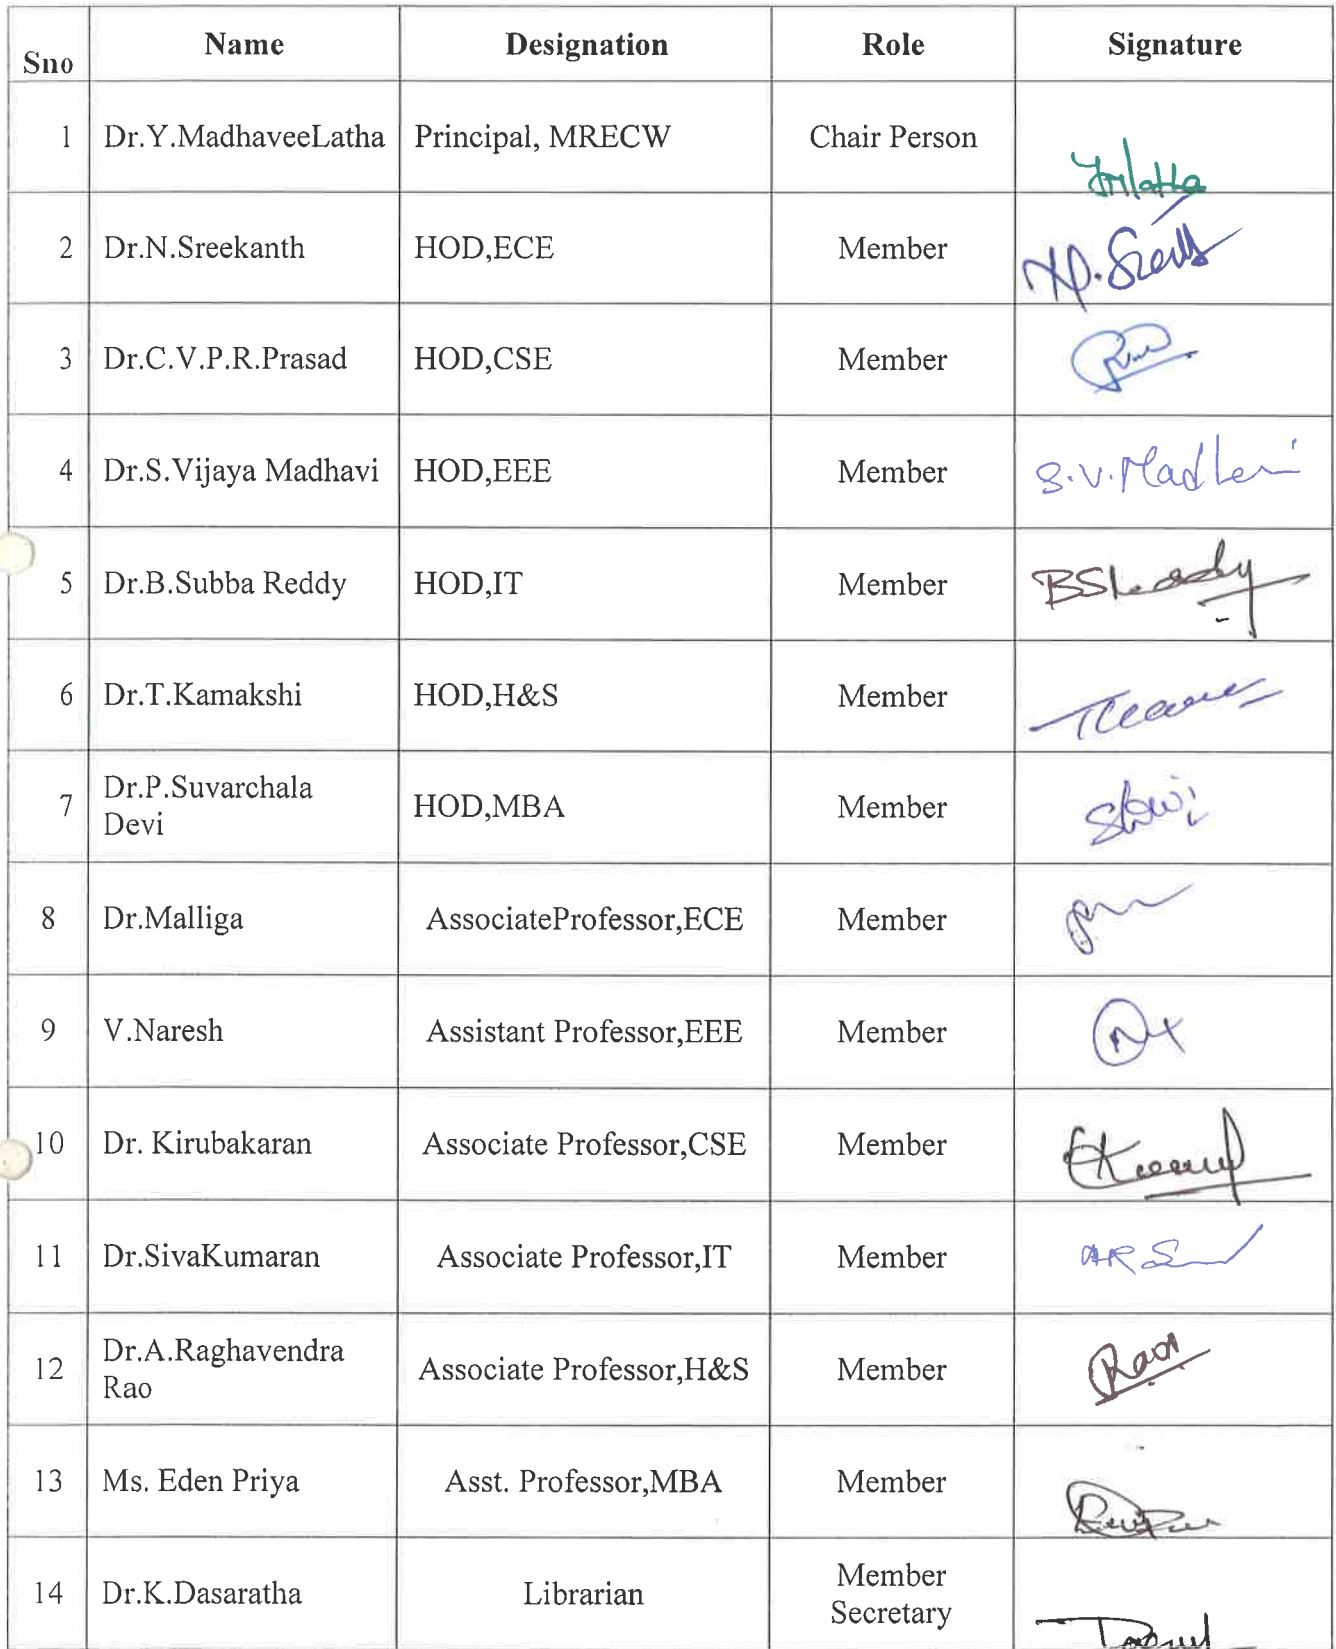 Sno Name Designation Role Signature
1 Dr.Y.MadhaveeLatha Principal, MRECW Chair Person
2 Dr.N.Sreekanth HOD,ECE Member
3 Dr.C.V.P.R.Prasad HOD,CSE Member
4 Dr.S.Vijaya Madhavi HOD,EEE Member S.V.Madhavi
5 Dr.B.Subba Reddy HOD,IT Member
6 Dr.T.Kamakshi HOD,H&S Member
7 Dr.P.Suvarchala
Devi HOD,MBA Member
8 Dr.Malliga AssociateProfessor,ECE Member
9 V.Naresh Assistant Professor,EEE Member
10 Dr. Kirubakaran Associate Professor,CSE Member
11 Dr.SivaKumaran Associate Professor,IT Member
12 Dr.A.Raghavendra
Rao Associate Professor,H&S Member Rao
13 Ms. Eden Priya Asst. Professor,MBA Member
14 Dr.K.Dasaratha Librarian Member
Secretary